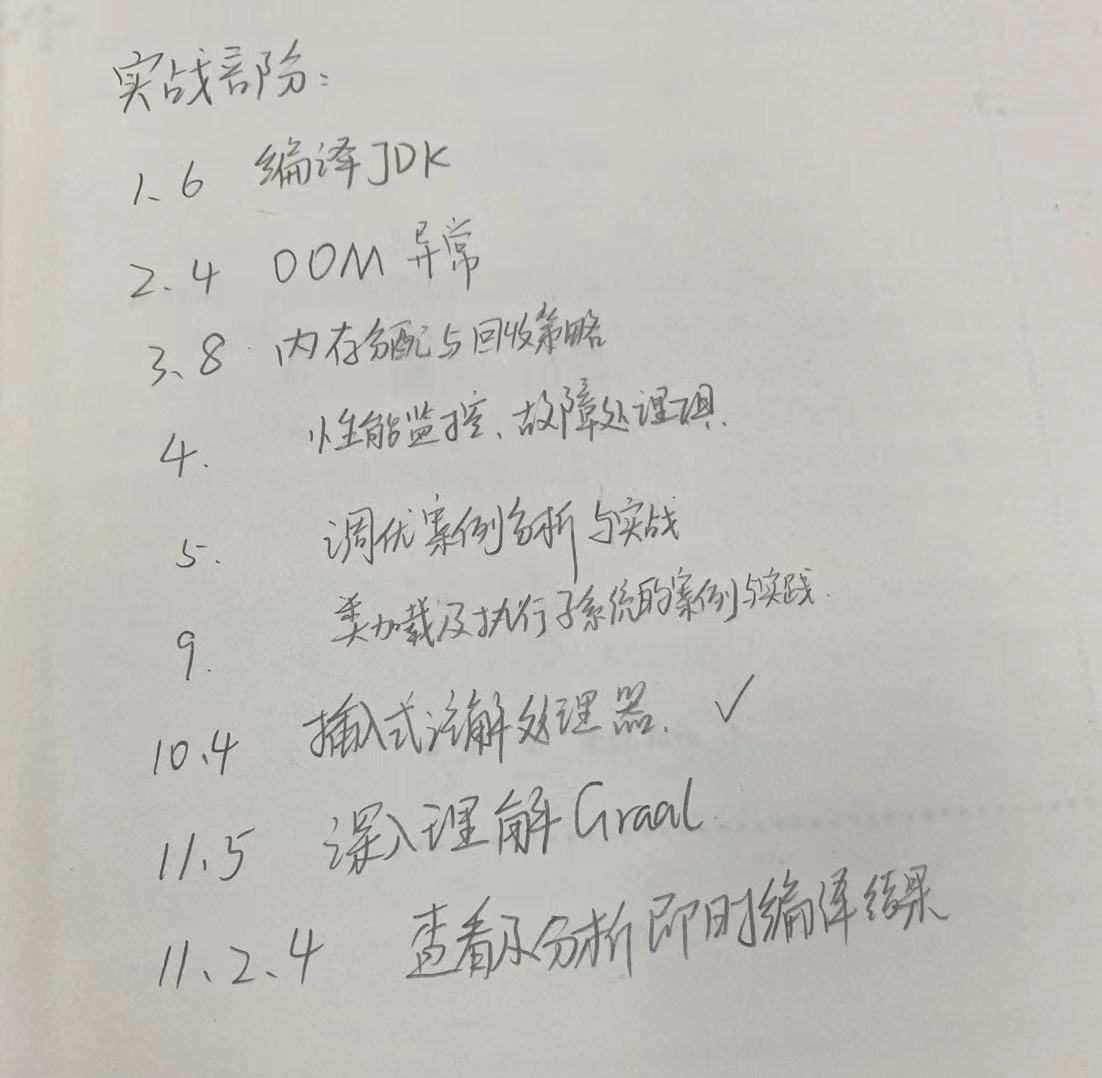 实战部份:
1.6 编译JDK
2.4 OOM 异常
3.8 内存分配与回收策略
4. 性能监控、故障处理工具.
5. 调优案例分析与实战
9. 类加载及执行子系统的案例与实践.
10.4 插入式注解处理器. ✓
11.5 深入理解Graal.
11.2.4 查看及分析即时编译结果